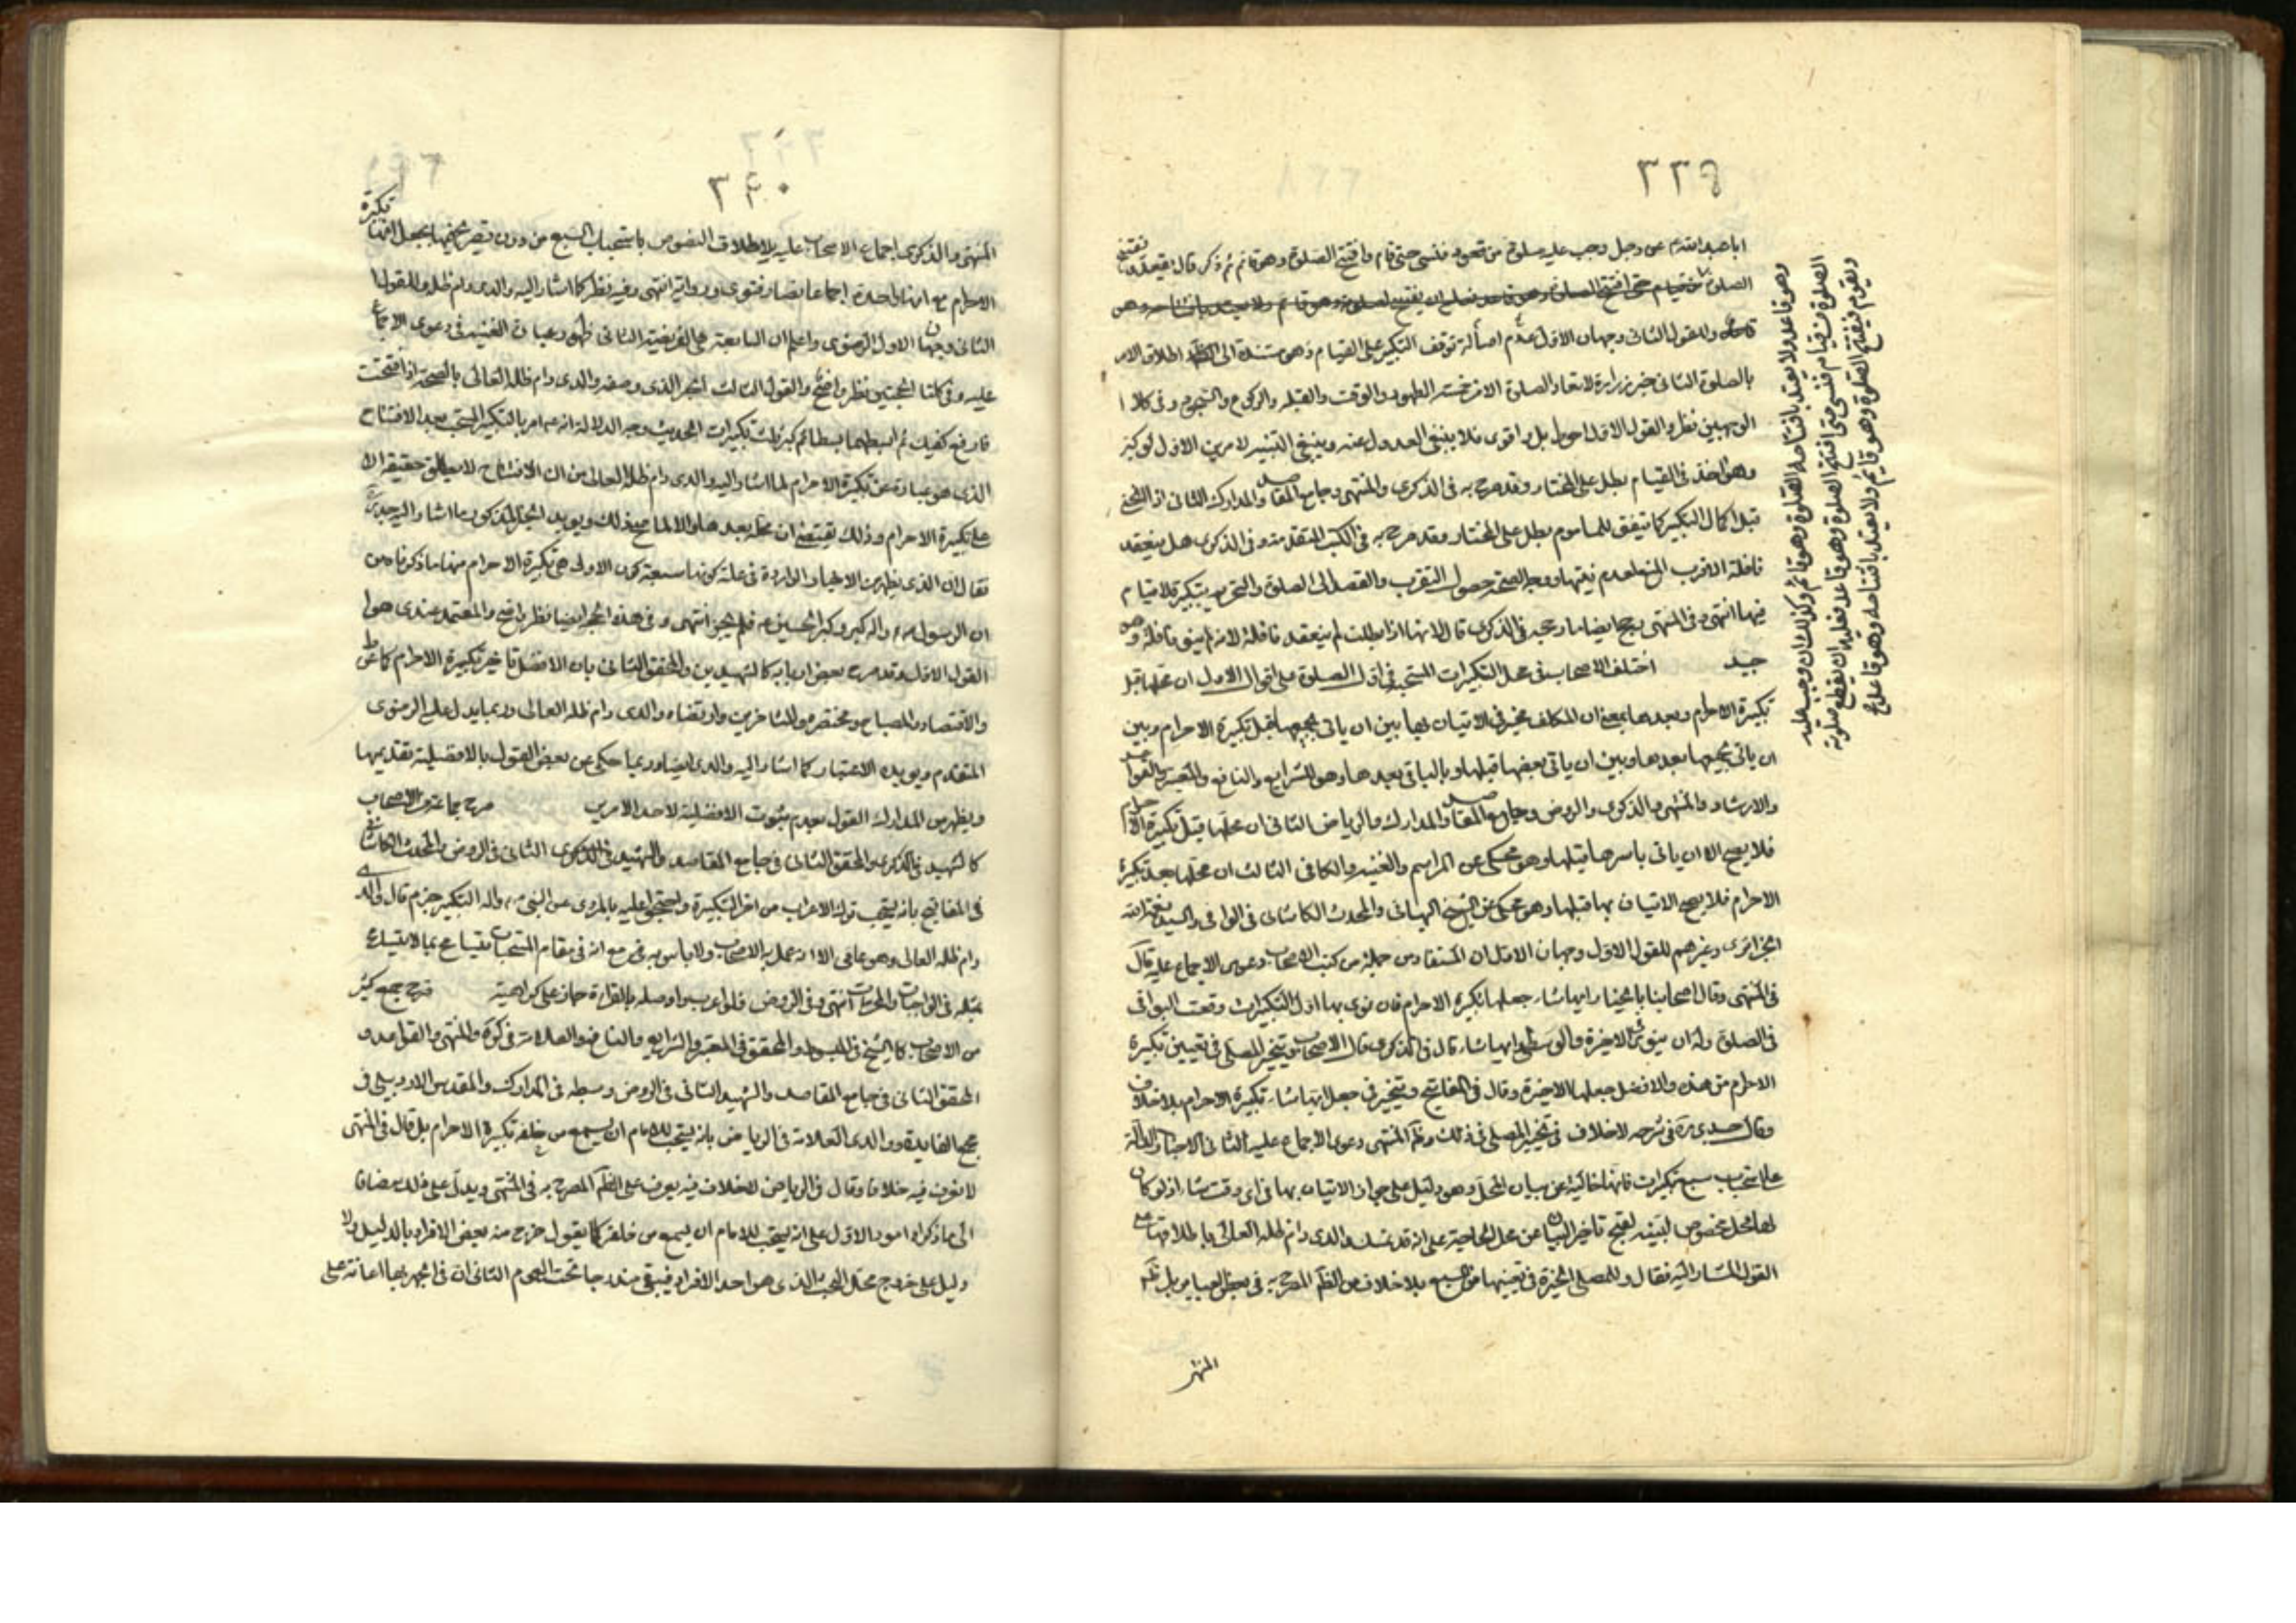 ٣٣٩
ابا عبد الله ع عن رجل وجب عليه صلوة من قعود فنسى حتى قام وافتتح الصلوة وهو قائم ثم ذكر قال يقعد ويفتتح
الصلوة من قيام حتى افتتح الصلوة وهو قاعد فعليه ان يفتتح الصلوة وهو قائم ولا يعتد بافتتاحه وهو
وللقول الثانى وجهان الاول عدم اصالة توقف التكبير على القيام وهو مستندة الى اطلاق الامر
بالصلوة الثانى خبر زرارة لا تعاد الصلوة الا من خمسة الطهور والوقت والقبلة والركوع والسجود وفى كلا ا
الوجهين نظر والقول الاول احوط بل واقوى فلا ينبغى العدول عنه وينبغى التنبيه لامرين الاول لو كبر
وهو اخذ فى القيام بطل على المختار وقد صرح به فى الذكرى والمنتهى وجامع المقاصد والمدارك الثانى اذا انحنى
قبل اكمال التكبير كما يتفق للماموم بطل على المختار وقد صرح به فى الكتب المتقدمة وفى الذكرى هل ينعقد
نافلة الاقرب المنع لعدم نيتها ووجه الصحة حصول التقرب والقصد الى الصلوة والتحريم بتكبيرة لا قيام
فيها انتهى وفى المنتهى رجح ايضا ما رجحه فى الذكرى قال لانها اذا بطلت لم ينعقد نافلة لانه لم ينو نافلة وهو
جيد اختلف الاصحاب فى محل التكبيرات المستحبة فى اول الصلوة على اقوال الاول ان محلها قبل
تكبيرة الاحرام وبعدها بمعنى ان المكلف مخير فى الاتيان بها بين ان ياتى بجميعها قبل تكبيرة الاحرام وبين
ان ياتى بجميعها بعدها وبين ان ياتى ببعضها قبلها وبالباقى بعدها وهو للشرايع والنافع والمعتبر والقواعد
والارشاد والمنتهى والذكرى والروض وجامع المقاصد والمدارك والرياض الثانى ان محلها قبل تكبيرة الاحرام
فلا يصح الا ان ياتى باسرها قبلها وهو محكى عن المراسم والغنية والكافى الثالث ان محلها بعد تكبيرة
الاحرام فلا يصح الاتيان بها قبلها وهو محكى عن الشيخ البهائى والمحدث الكاشانى فى الوافى والسيد نعمة الله
الجزائرى وغيرهم للقول الاول وجهان الاول ان المستفاد من جملة من كتب الاصحاب دعوى الاجماع عليه قال
فى المنتهى وقال اصحابنا بالخيار ايها شاء جعلها تكبيرة الاحرام فان نوى بها اول التكبيرات وقعت البواقى
فى الصلوة وله ان ينوى الاخيرة والوسطى ايها شاء قال فى الذكرى قال الاصحاب ويتخير المصلى فى تعيين تكبيرة
الاحرام من هذه والافضل جعلها الاخيرة وقال فى المفاتيح ويتخير فى جعل ايها شاء تكبيرة الاحرام بلا خلاف
وقال جدى ره فى شرحه لا خلاف فى تخيير المصلى فى ذلك وظم المنتهى دعوى الاجماع عليه الثانى الاخبار الدالة
على استحباب سبع تكبيرات فانها خالية عن بيان المحل وهو دليل على جواز الاتيان بها فى اى وقت شاء اذ لو كان
لها محل مخصوص لبينه لقبح تاخير البيان عن محل الحاجة على انه قد تمسك والدى دام ظله العالى باطلاقها على
القول المشار اليه فقال وللمصلى الخيرة فى تعيينها من السبع بلا خلاف من الظم المصرح به فى بعض العبائر بل ظم
المنتهى
وهو قاعد ولا يعتد بافتتاحه الصلوة وهو قائم وكذلك ان وجب عليه
الصلوة من قيام فنسى حتى افتتح الصلوة وهو قاعد فعليه ان يقطع صلوته
ويقوم فيفتتح الصلوة وهو قائم ولا يعتد بافتتاحه وهو قاعد
٣٤٠
المنتهى والذكرى اجماع الاصحاب عليه لاطلاق النصوص باستحباب السبع من دون تصريح فيها بجعل افتتاح تكبيرة
الاحرام مع انها واحدة اجماعا نصا وفتوى ورواية انتهى وفيه نظر كما اشار اليه والدى دام ظله وللقول
الثانى وجهان الاول الرضوى واعلم ان السابعة هى الفريضة الثانى ظهور عبارة الغنية فى دعوى الاجماع
عليه وفى كلتا الحجتين نظر واضح وللقول الثالث الخبر الذى وصفه والدى دام ظله العالى بالصحة اذا افتتحت
فارفع كفيك ثم ابسطهما بسطا ثم كبر ثلث تكبيرات الحديث وجه الدلالة انه ع امر بالتكبير المستحب بعد الافتتاح
الذى هو عبارة عن تكبيرة الاحرام لما اشار اليه والدى دام ظله العالى من ان الافتتاح لا يطلق حقيقة الا
على تكبيرة الاحرام وذلك يقتضى ان محله بعدها والا لما صح ذلك ويؤيد الخبر المذكور ما اشار اليه جدى
فقال ان الذى يظهر من الاخبار الواردة فى علة كونها سبعة كون الاولى هى تكبيرة الاحرام منها ما ذكرنا من
ان الرسول ص واله كبر وكبر الحسين ع فلم يحر انتهى وفى هذه الحجة ايضا نظر واضح والمعتمد عندى هو ا
القول الاول وقد صرح بعض اربابه كالشهيدين والمحقق الثانى بان الافضل تاخير تكبيرة الاحرام كما عن ط
والاقتصاد والمصباح ومختصره والمتاخرين وارتضاه والدى دام ظله العالى وربما يدل عليه الرضوى
المتقدم ويؤيده الاعتبار كما اشار اليه والدى ايضا وربما حكى عن بعض القول بالافضلية بتقديمها
ويظهر من المدارك القول بعدم ثبوت الافضلية لاحد الامرين صرح جماعة من الاصحاب
كالشهيد فى الذكرى والمحقق الثانى فى جامع المقاصد والشهيد الثانى فى الروض والمحدث الكاشانى
فى المفاتيح بانه يستحب ترك الاعراب من اخر التكبيرة واحتجوا عليه بالمروى عن النبى ص واله التكبير جزم قال والدى
دام ظله العالى وهو عامى الا انه عمل به الاصحاب ولا باس به فى مع انه فى مقام المستحبات يتسامح بما لا يتسامح
بمثله فى الواجبات والمحرمات انتهى وفى الروض فلو اعرب او وصله بالقراءة جاز على كراهية صرح جمع كثير
من الاصحاب كالشيخ فى المبسوط والمحقق فى المعتبر والشرايع والنافع والعلامة فى كره والمنتهى والقواعد و
المحقق الثانى فى جامع المقاصد والشهيد الثانى فى الروض وسبطه فى المدارك والمقدس الاردبيلى فى
مجمع الفايدة ووالدى العلامة فى الرياض بانه يستحب للامام ان يسمع من خلفه تكبيرة الاحرام بل قال فى المنتهى
لا نعرف فيه خلافا وقال فى الرياض للخلاف فيه يعرف على الظم المصرح به فى المنتهى ويدل على ذلك مضافا
الى ما ذكراه امور الاول على انه يستحب للامام ان يسمع من خلفه كلما يقول خرج منه بعض الافراد بالدليل ولا
دليل على خروج محل البحث الذى هو احد الافراد فيبقى مندرجا تحت العموم الثانى ان فى الجهر بها اعانة على